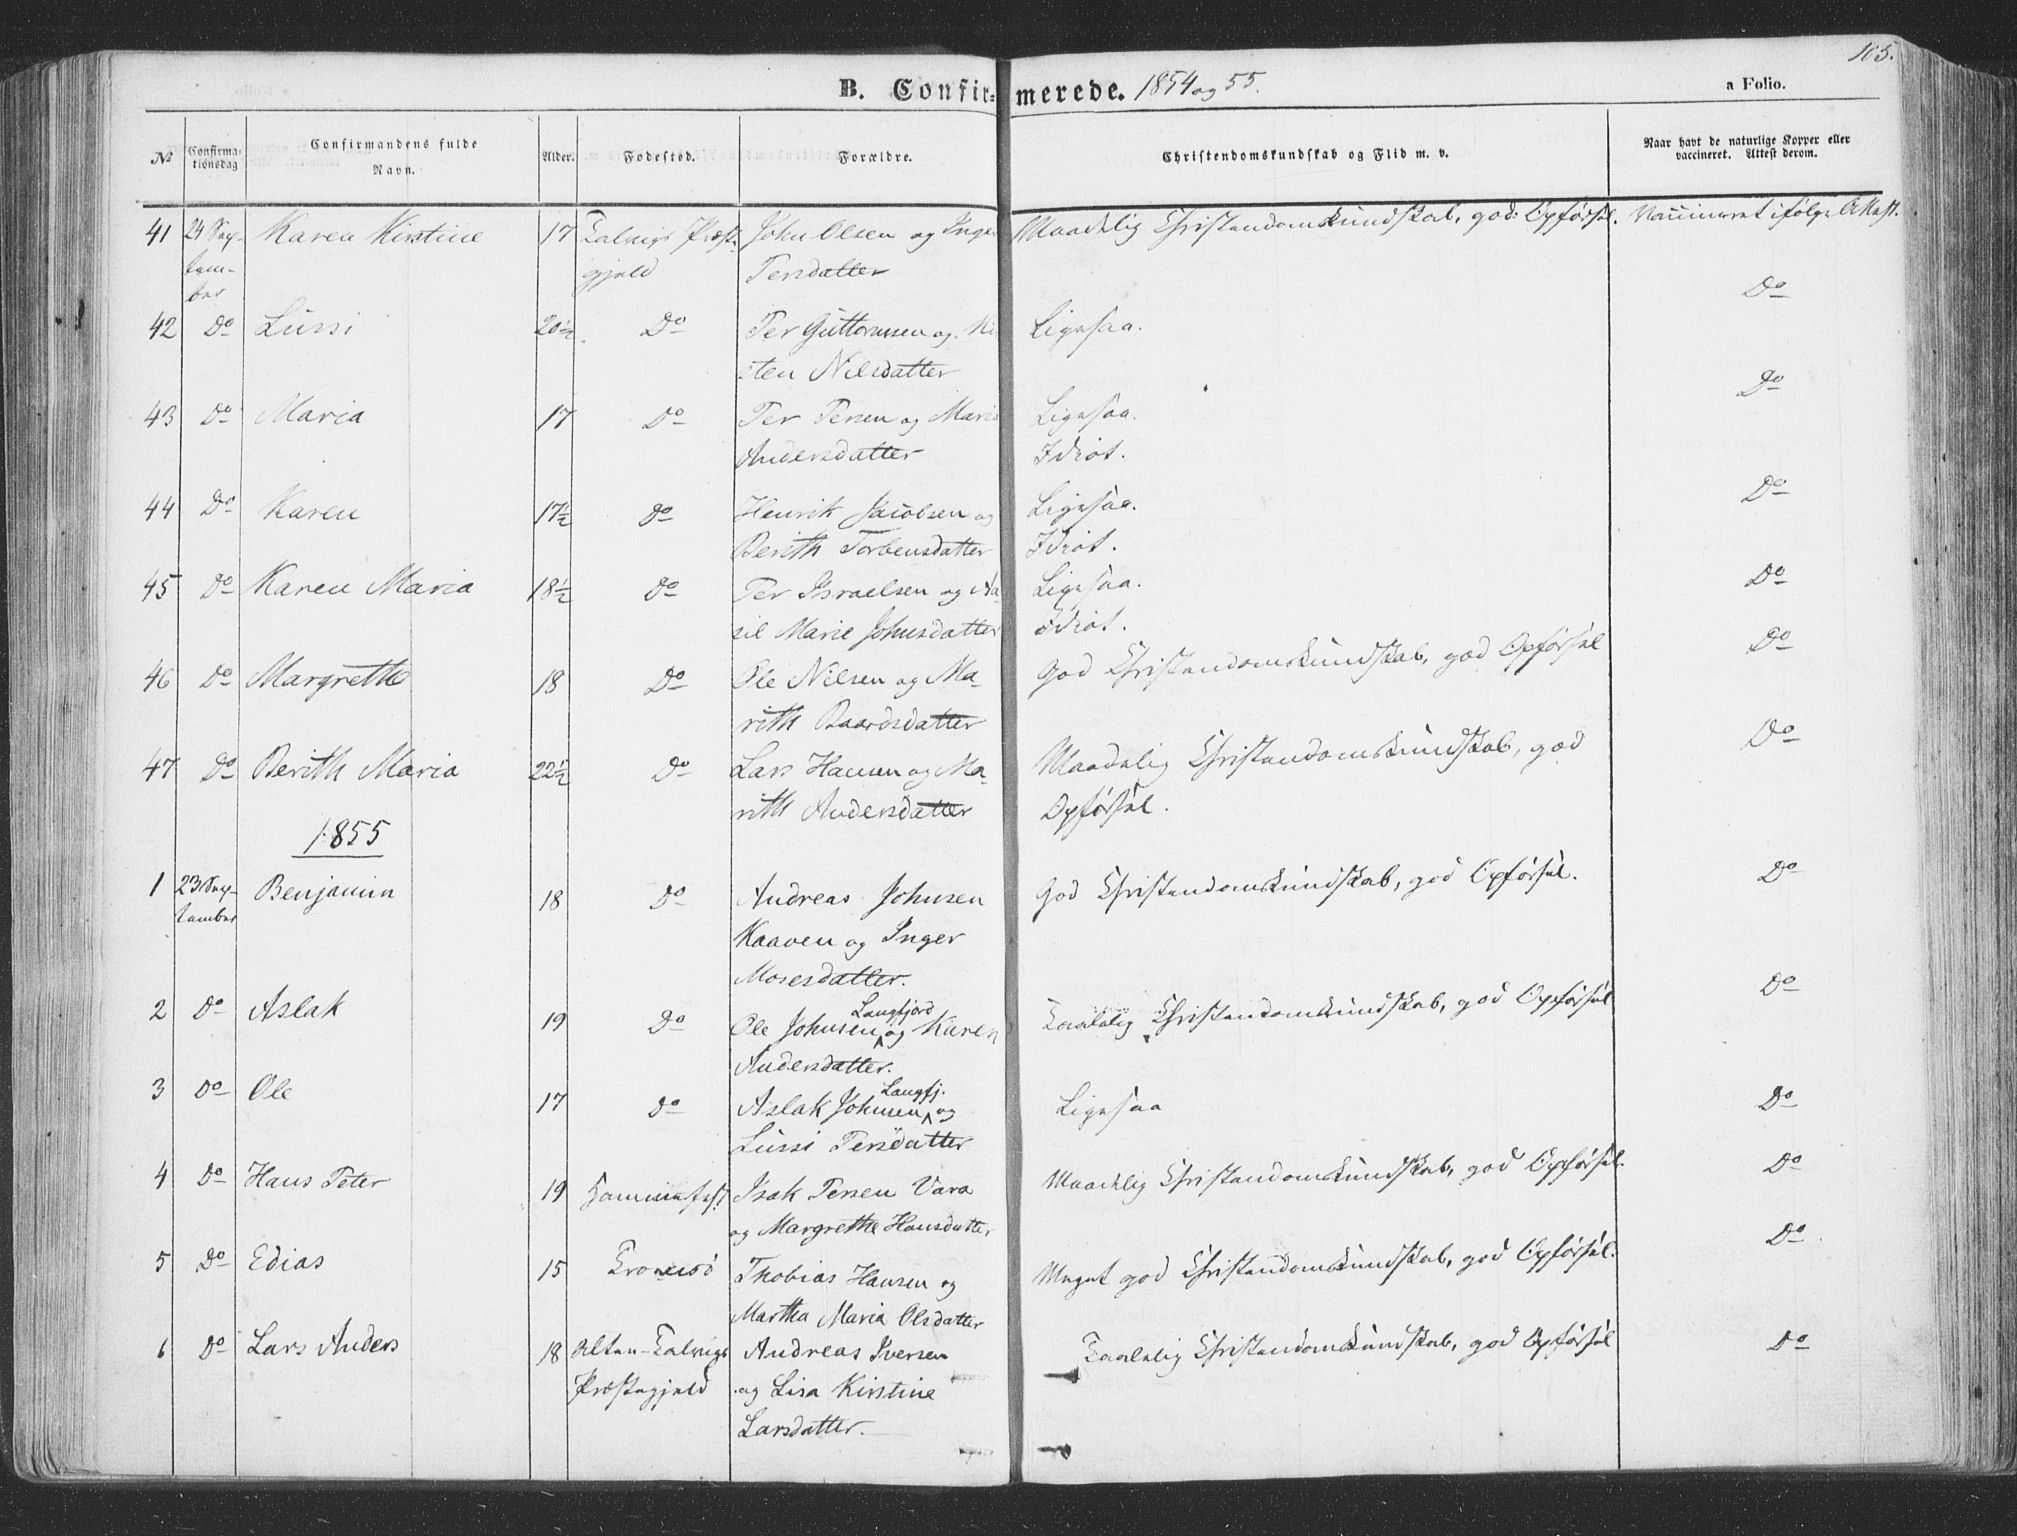 165.
B. Confirmerede. 1854 og 55.
a Folio.
No
Confirmationsdag
Confirmandens fulde Navn.
Alder.
Fodested.
Forældre.
Christendomskundskab og Flid m. v.
Naar havt de naturlige Kopper eller vaccineret. Attest derom.
41 24 Sep- Karen Kirstine 17 Talvigs Præst. John Olsen og Inger Maadelig Christendomskundskab, god Opførsel. Vaccineret ifølge Attest.
tem- gjeld Persdatter
ber
42 Do Lussi 20½ Do Per Guttormsen og Ki Ligesaa. Do
sten Nilsdatter
43 Do Maria 17 Do Per Persen og Maria Ligesaa. Do
Andersdatter Idiot.
44 Do Karen 17½ Do Henrik Jacobsen og Ligesaa. Do
Berith Torbensdatter Idiot.
45 Do Karen Maria 18½ Do Per Israelsen og Aa- Ligesaa. Do
sil Marie Johnsdatter Idiot.
46 Do Margrethe 18 Do Ole Nilsen og Ma- God Christendomskundskab, god Opførsel Do
rith Baardsdatter
47 Do Berith Maria 22½ Do Lars Hansen og Ma- Maadelig Christendomskundskab, god Do
rith Andersdatter Opførsel.
1855
1 23 Sep- Benjamin 18 Do Andreas Johnsen God Christendomskundskab, god Opførsel. Do
tember Kaaven og Inger
Mosesdatter.
2 Do Aslak 19 Do Ole Johnsen Langfjord og Karen Taalelig Christendomskundskab, god Opførsel Do
Andersdatter.
3 Do Ole 17 Do Aslak Johnsen Langfj. og Ligesaa Do
Lussi Persdatter
4 Do Hans Peter 19 Hammerfest Isak Persen Vara Maadelig Christendomskundskab, god Opførsel. Do
og Margrethe Hansdatter
5 Do Edias 15 Tromsö Thobias Hansen og Meget god Christendomskundskab, god Opførsel. Do
Martha Maria Olsdatter
6 Do Lars Anders 18 Alten-Talvigs Andreas Iversen Taalelig Christendomskundskab, god Opførsel Do
Præstegjeld og Lisa Kirstine
Larsdatter.